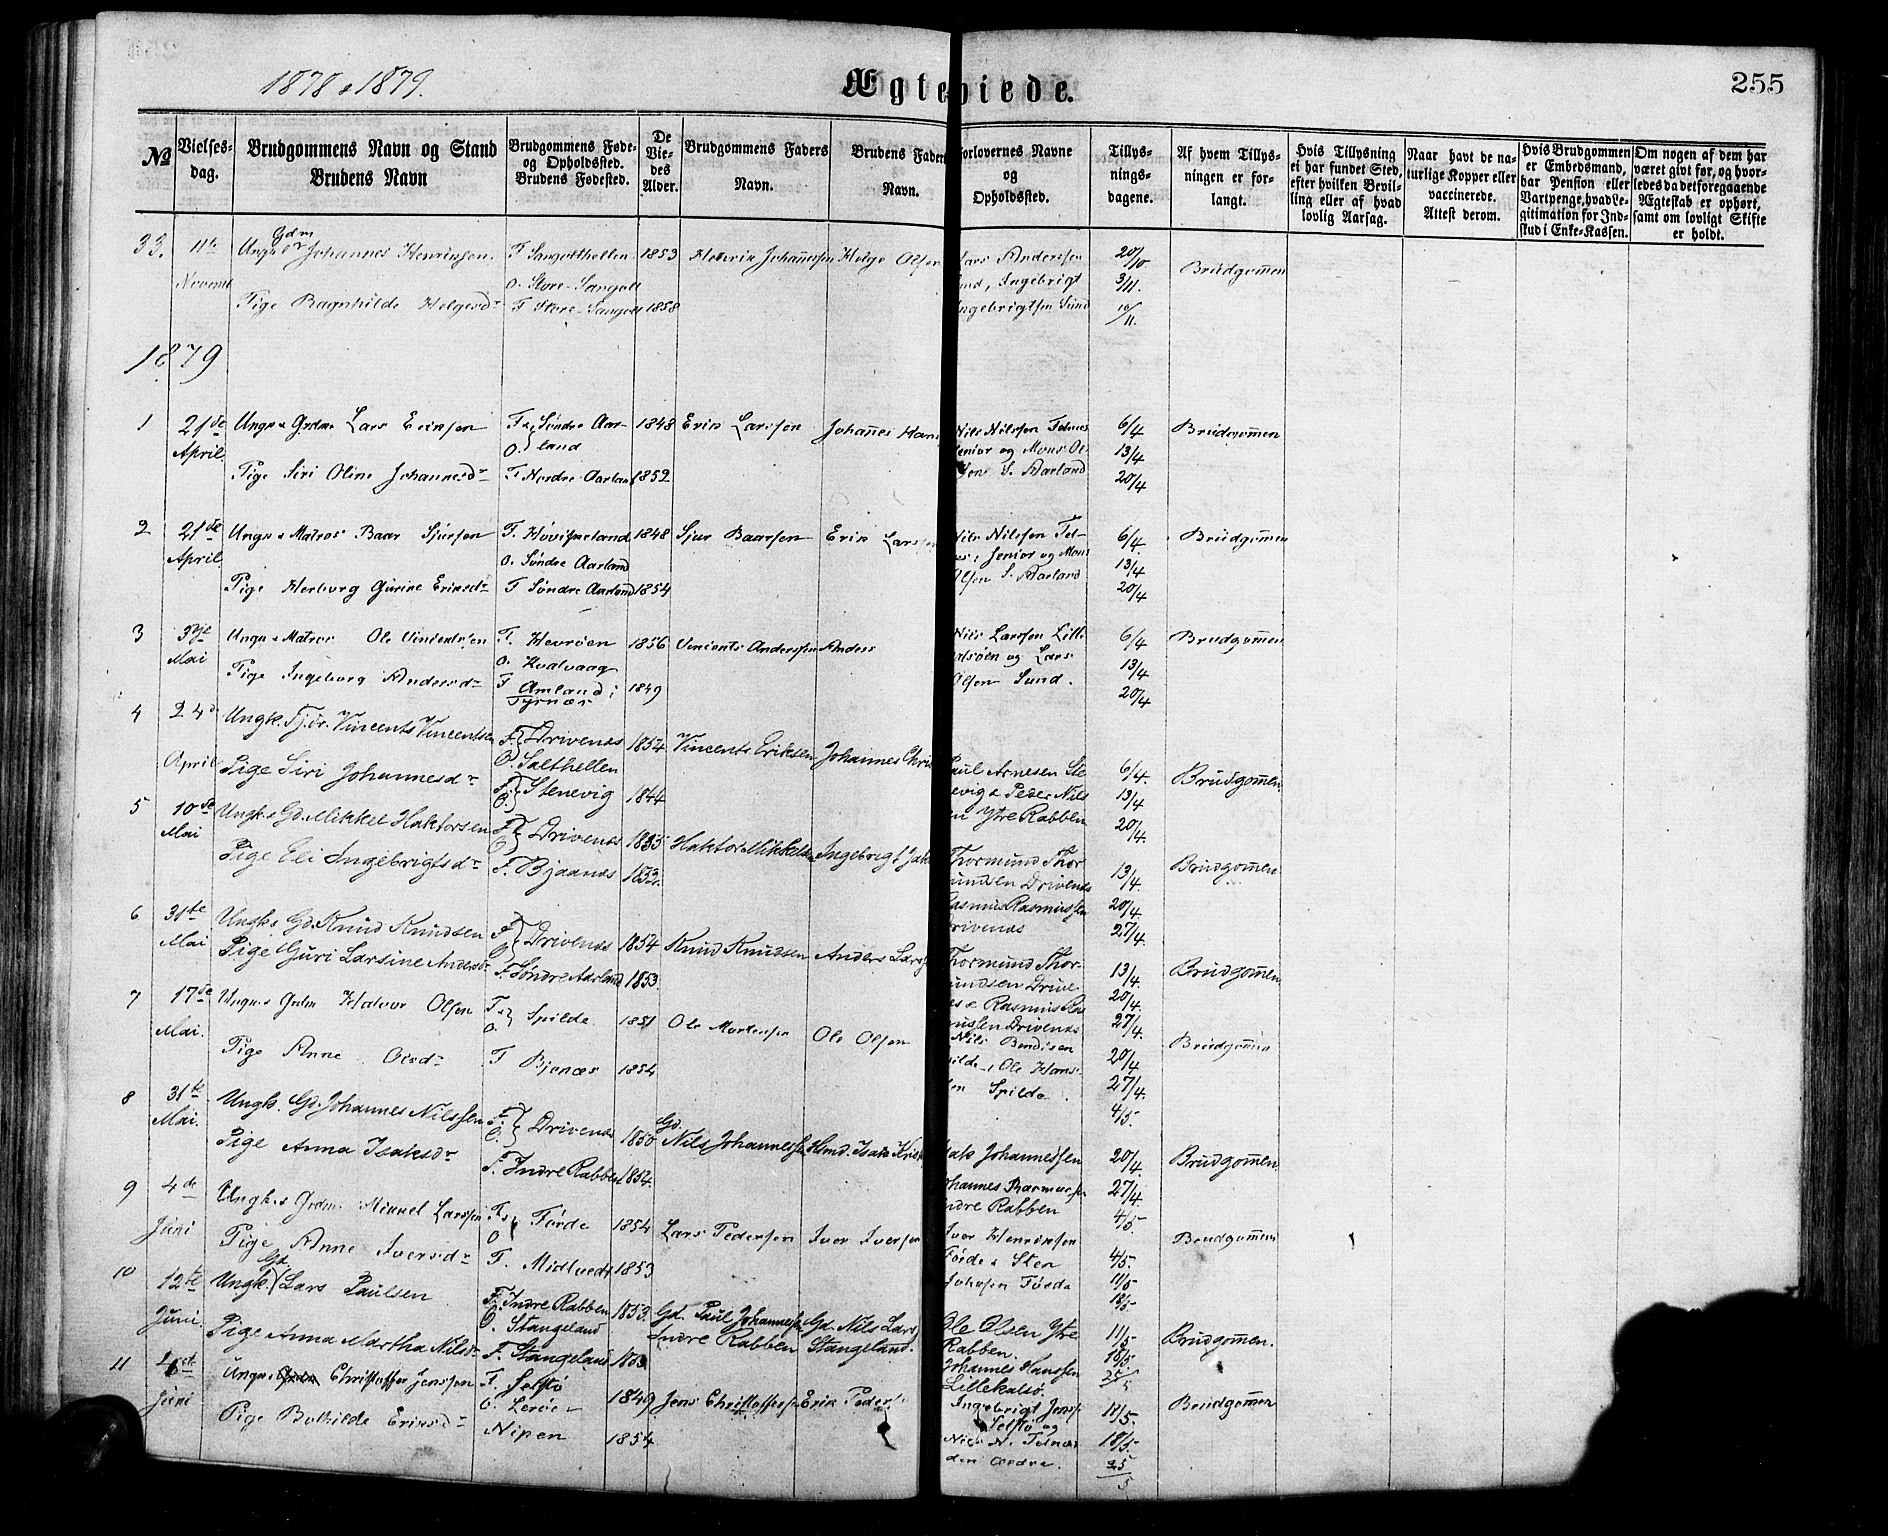 1878 & 1879.
Ægteviede.
255
No
Vielses-dag.
Brudgommens Navn og Stand
Brudens Navn
Brudgommens Føde- og Opholdssted.
Brudens Fødested.
De Vie-des Alder.
Brudgommens Faders Navn.
Brudens Faders Navn.
Forlovernes Navne og Opholdssted.
Tillys-nings-dagene.
Af hvem Tillys-ningen er for-langt.
Hvis Tillysning ei har fundet Sted, efter hvilken Bevil-ling eller af hvad lovlig Aarsag.
Naar havt de na-turlige Kopper eller vaccinerede. Attest derom.
Hvis Brudgommen er Embedsmand, har Pension eller Vartpenge, hvad Le-gitimation for Ind-skud i Enke-Kassen.
Om nogen af dem har været givt før, og hvor-ledes da det foregaaende Ægteskab er ophørt, samt om lovligt Skifte er holdt.
33. 11te Novemb
Ungk. & Gdm Johannes Henriksen. F. Sangolthellen 1853 Henrik Johannessen Helge Olsen Lars Andersen 20/10 Brudgommen
O. Store-Sangolt Sund, Ingebrigt 3/11.
Pige Ragnhilde Helgesdr F Store-Sangolt 1858 Ingebrigtsen Sund 10/11.
1879
1 21de April. Ungk. & Grdm. Lars Eriksen F & O. Søndre Aarland 1848 Erik Larssen Johannes Hans Nils Nilssen Telnes 6/4 Brudgommen
Senior og Mons Ol- 13/4
Pige Siri Oline Johannesdr F Nordre Aarland 1852 sen S. Aarland 20/4
2 21de April. Ungk & Matros Baar Sjursen F. Høviskeland 1848 Sjur Baarsen Erik Larssen Nils Nilssen Tel- 6/4. Brudgommen
O. Søndre Aarland nes, Senior og Mons 13/4
Pige Herborg Gurine Eriksdr F Søndre Aarland 1854 Olsen S. Aarland 20/4
3 3die Mai Ungk & Matros Ole Vincentsen F. Hevrøen 1856 Vincents Andersen Anders Nils Larssen Lille 6/4 Brudgommen
O. Hvalvaag kalsøen og Lars 13/4
Pige Ingeborg Andersdr F Amland i Tysnæs 1849 Olsen Sund. 20/4
4 24de April Ungk. Tj.dr. Vincents Vincentsen F. O. Drivenes Salthellen 1852 Vincents Eriksen Johannes Chris Paul Arnesen Ste 6/4. Brudgommen.
nevig & Peder Nils 13/4
Pige Siri Johannesdr F. O. Stenevig 1844 en Ytre Rabben 20/4.
5 10de Mai Ungk & Gd. Mikkel Haktorsen F O Drivenes 1855 Haktor Mikkelsen Ingebrigt Jak Thormund Thor 13/4. Brudgommen
mundsen Drivenes 20/4.
Pige Eli Ingebrigtsdr F. Bjaanes Rasmus Rasmussen Drivenes 27/4.
6 31te Mai Ungk & Gd. Knud Knudsen F O Drivenes 1854 Knud Knudsen Anders Lars Thormund Thor- 13/4. Brudgommen
mundsen Drive 20/4.
Pige Guri Larsine Andersdr F. Søndre Aarland 1853. nes & Rasmus Ras 27/4.
mussen Drivenes
7 17de Mai. Ungk & Grdm Halvor Olsen F & O. Spilde 1851 Ole Mortensen Ole Olsen Nils Bendixen 20/4 Brudgommen
Spilde, Ole Hans- 27/4.
Pige Anne Olesdr F Bjonæs 1854 sen Spilde. 4/5.
8 31te Mai. Ungk. Gd. Johannes Nilssen F. O. Drivenes 1850 Gd. Nils Johannessen Hmd. Isak Kris Isak Johannessen 20/4. Brudgommen.
Johannes Rasmussen 27/4.
Pige Anna Isaksdr F. Indre Rabben 1854. Indre Rabben 4/5
9 4de Juni Ungk. & Grdm. Mikkel Larssen F & O Førde 1854 Lars Pedersen Iver Iversen Iver Henriksen 4/5. Brudgommen
Førde & Sten 11/5
Pige Anne Iversdr F. Midtvedt 1853 Johssen Førde 18/5
10 12te Juni. Ungk. Gd. Lars Paulsen F. Indre Rabben 1853. Gd. Paul Johannessen Gd. Nils Lars Ole Olsen Ytre 11/5 Brudgommen.
O. Stangeland Indre Rabben Stangeland. Rabben. 18/5.
Pige Anna Martha Nilsdr F. Stangeland Johannes Hanssen Lillekalsø. 25/5
11 Juni Ungk. Christoffer Jenssen F. Selstø 1849 Jens Christoffersen Erik Peders Ingebrigt Jens 11/5. Brudgommen
O. Lerøe Selstø og 18/5.
Pige Bothilde Eriksdr Nipen 1854. Niels N. Telnæs den ældre. 25/5